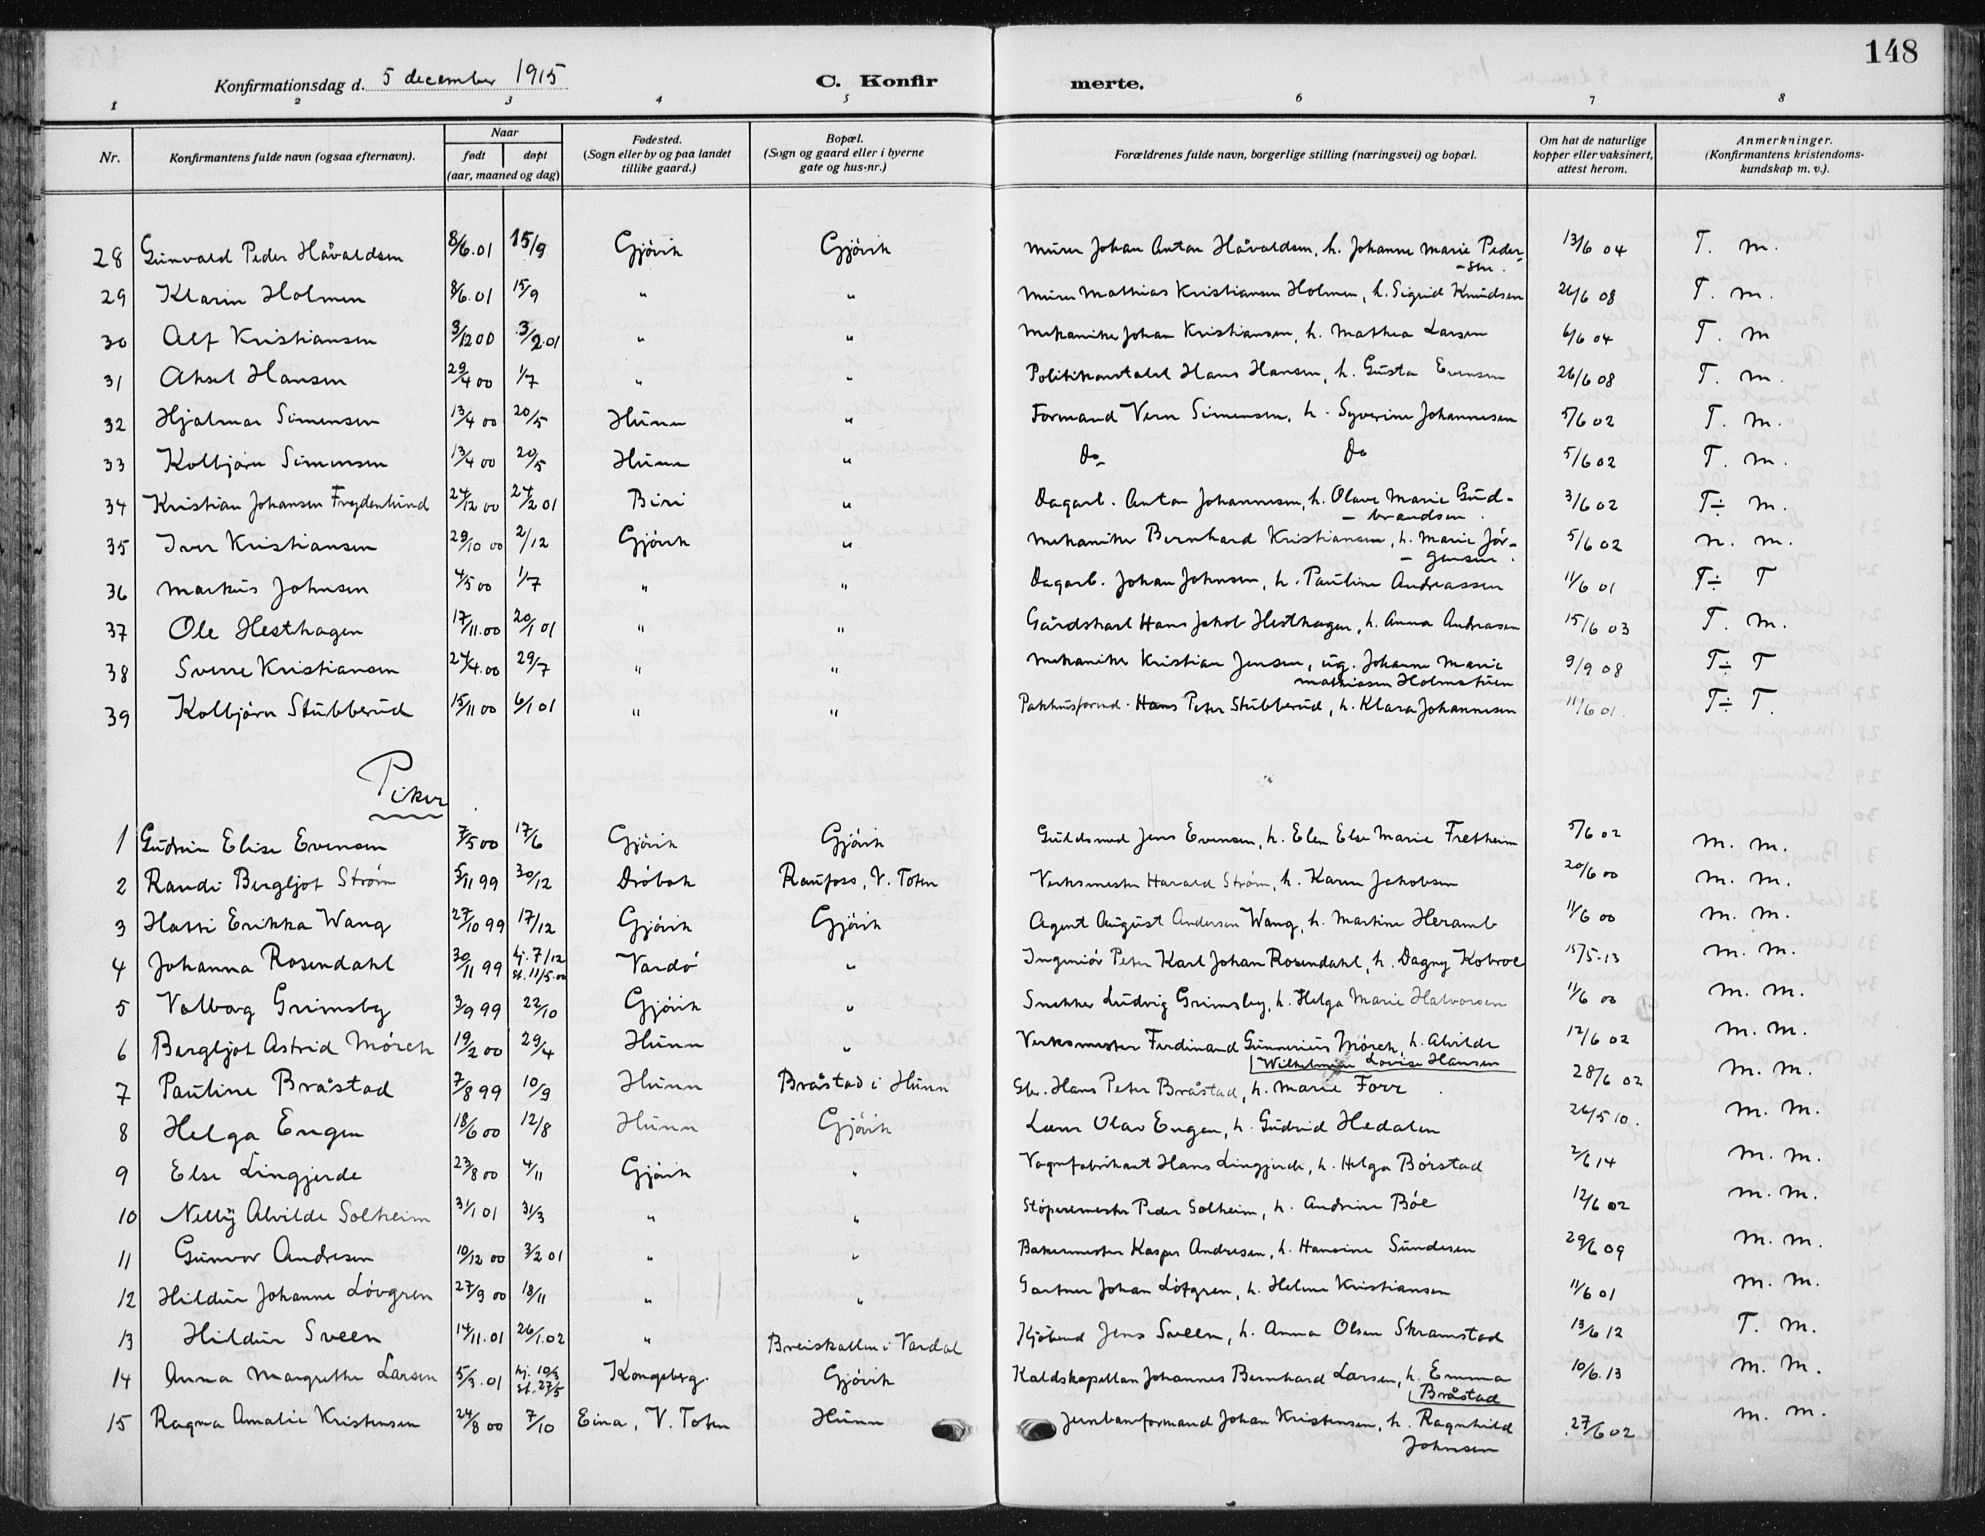 148
Konfirmationsdag d. 5 december 1915 C. Konfirmerte.
1 2 3 4 5 6 7 8
Nr. Konfirmantens fulde navn (ogsaa efternavn). Naar født døpt (aar, maaned og dag) Fødested. (Sogn eller by og paa landet tillike gaard.) Bopæl. (Sogn og gaard eller i byerne gate og hus-nr.) Forældrenes fulde navn, borgerlige stilling (næringsvei) og bopæl. Om hat de naturlige kopper eller vaksinert, attest herom. Anmerkninger. (Konfirmantens kristendoms-kundskap m. v.).
28 Gunvald Peder Håvaldsen 8/6.01 15/9 Gjövik Gjövik Murer Johan Anton Håvaldsen, h. Johanne Marie Peder-sen. 13/6 04 T. m.
29 Klarin Holmen 8/6.01 15/9 " " Murer Mathias Kristiansen Holmen, h. Sigrid Knudsen 26/6 08 T. m.
30 Alf Kristiansen 3/12 00 3/2.01 " " Mekaniker Johan Kristiansen, h. Mathea Larsen 6/6 04 T. m
31 Aksel Hansen 29/4 00 1/7 " " Politikonstabel Hans Hansen, h. Gusta Evensen 26/6 08 T. m.
32 Hjalmar Simensen 13/4 00 20/5 Hunn " Formand Vern Simensen, h. Syverine Johannesen 5/6 02 T. m.
33 Kolbjörn Simensen 13/4 00 20/5 Hunn " Do Do 5/6 02 T. m.
34 Kristian Johansen Frydenlund 24/12 00 24/2 01 Biri " Dagarb. Anton Johannesen, h. Olave Marie Gud-brandsen. 3/6 02 T÷ m.
35 Iver Kristiansen 29/10 00 2/12 Gjövik " Mekaniker Bernhard Kristiansen, h. Marie Jör-gensen. 5/6 02 n. m.
36 Markus Johnsen 4/5 00 1/7 " " Dagarb. Johan Johnsen, h. Pauline Andreassen 11/6 01 T÷ T
37 Ole Hesthagen 17/11.00 20/1 01 " " Gårdskarl Hans Jakob Hesthagen, h. Anna Andreasen 15/6 03 T. m.
38 Sverre Kristiansen 24/4.00 29/7 " " Mekaniker Kristian Jensen, ug. Johanne Marie Mathiasen Holmstuen 9/9 08 T÷ T
39 Kolbjörn Stubberud 15/11 00 6/1 01 " " Pakhusformd. Hans Peter Stubberud, h. Klara Johannesen 11/6 01. T÷ T.
Piker
1 Gudrun Elise Evensen 7/5 00 17/6 Gjövik Gjövik Guldsmed Jens Evensen, h. Elen Else Marie Fretheim 5/6 02 m. m.
2 Randi Bergljot Ström 5/11 99 30/12 Dröbak Raufoss, V. Toten Verksmester Harald Ström, h. Karen Jakobsen 20/6 00 m. m.
3 Hatti Erikka Wang 27/10 99 17/12 Gjövik Gjövik Agent August Andersen Wang, h. Martine Heramb 11/6 00 m. m.
4 Johanna Rosendahl 30/11 99 hj. 7/12 st. 11/5.00 Vardö " Ingeniör Peter Karl Johan Rosendahl, h. Dagny Kobroe 15/5.13 m. m.
5 Valborg Grimsby 3/9 99 22/10 Gjövik " Snekker Ludvig Grimsby, h. Helga Marie Halvorsen 11/6 00 m. m.
6 Bergljot Astrid Mörch 19/2 00 29/4 Hunn " Verksmester Ferdinand Gunnerius Mörch, h. Alvilde Wilhelmine Lovise Hansen 12/6 02 m. m.
7 Pauline Bråstad 7/8 99 10/9 Hunn Bråstad i Hunn Gbr. Hans Peter Bråstad, h. Marie Foss 28/6 02 m. m.
8 Helga Engen 18/6 00 12/8 Hunn Gjövik Lærer Olav Engen, h. Gudrid Hedalen 26/5 10. m. m.
9 Else Lingjerde 23/8 00 4/11 Gjövik " Vognfabrikant Hans Lingjerde, h. Helga Börstad 2/6 14 m. m.
10 Nelly Alvilde Solheim 31/1 01 31/3 " " Stöperimester Peder Solheim, h. Andrine Böe 12/6 02 m. m.
11 Gunvor Andresen 10/12 00 3/2 01 " " Bakermester Kasper Andresen, h. Hansine Sundesen 29/6 09 m. m.
12 Hildur Johanne Lövgren 27/9 00 18/11 " " Gartner Johan Löfgren, h. Helene Kristiansen 11/6 01 m. m.
13 Hildur Sveen 14/11.01 26/1.02 " Breiskallen i Vardal Kjöbmd Jens Sveen, h. Anna Olsen Skramstad 13/6 12 T. m.
14 Anna Margrethe Larsen 5/3.01 hj. 10/3 st. 27/5 Kongsberg. Gjövik Kaldskapellan Johannes Bernhard Larsen, h. Emma Bråstad 10/6.13 m. m.
15 Ragna Amalie Kristensen 24/8 00 7/10 Eina, V. Toten Hunn Jernbaneformand Johan Kristensen, h. Ragnhild Johnsen 27/6 02 m. m.